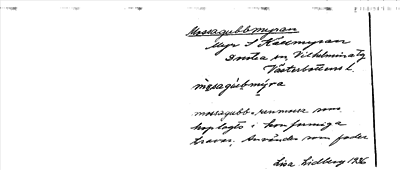 Mossagubbmyran
Myr S Käxmyran
Dorotea sn, Vilhelmina tg
Västerbottens l.
mosagubmyra
mossagubb = renmossa som
hoplagts i konformiga
travar. Användes som foder
Lisa Lidberg 1936